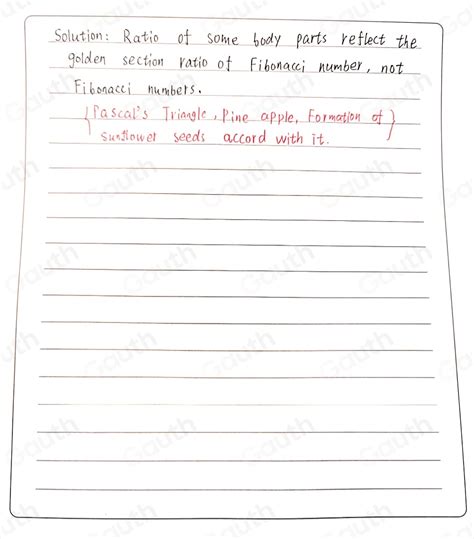 Solution: Ratio of some body parts reflect the
golden section ratio of Fibonacci number, not
Fibonacci numbers.
{Pascal's Triangle, Pine apple, Formation of}
Sunflower seeds accord with it.